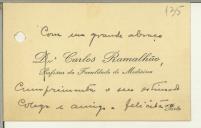 135
Com um grande abraço
Dr. Carlos Ramalhão,
Professor da Faculdade de Medicina
Cumprimenta o seu estimado
Colega e amigo e felicita-o
Porto